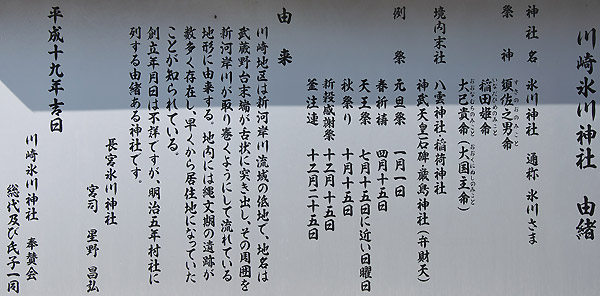 川崎氷川神社　由緒
神社名　氷川神社　通称　氷川さま
祭神　須佐之男命
稲田姫命
大己貴命（大国主命）
境内末社　八雲神社・稲荷神社
神武天皇石碑・厳島神社（弁財天）
例祭　元旦祭　一月一日
春祈祷　四月十五日
天王祭　七月十五日に近い日曜日
秋祭り　十月十五日
新穀感謝祭　十二月十五日
釜注連　十二月二十五日
由来
川崎地区は新河岸川流域の低地で、地名は
武蔵野台末端が舌状に突き出し、その周囲を
新河岸川が取り巻くようにして流れている
地形に由来する。地内には縄文期の遺跡が
数多く存在し、早くから居住地になっていた
ことが知られている。
創立年月日は不詳ですが、明治五年村社に
列する由緒ある神社です。
長宮氷川神社
宮司　星野　昌弘
平成十九年吉日
川崎氷川神社　奉賛会
総代及び氏子一同